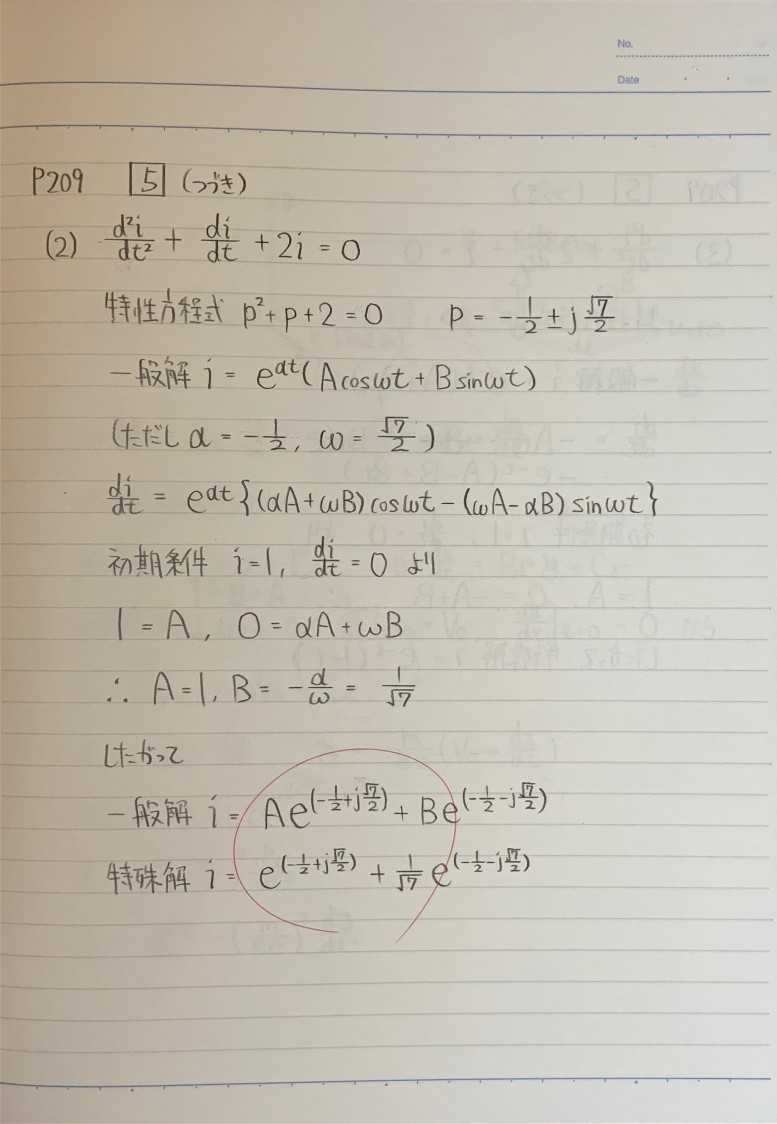 No.
Date
P209 5 (つづき)
(2) d²i/dt² + di/dt + 2i = 0
特性方程式 p²+p+2=0 p = -1/2 ± j √7/2
一般解 i = e^αt (A cosωt + B sinωt)
(ただし α = -1/2, ω = √7/2)
di/dt = e^αt {(αA+ωB) cosωt - (ωA-αB) sinωt}
初期条件 i=1, di/dt = 0 より
1 = A, 0 = αA+ωB
∴ A=1, B = -α/ω = 1/√7
したがって
一般解 i = Ae^(-1/2+j√7/2) + Be^(-1/2-j√7/2)
特殊解 i = e^(-1/2+j√7/2) + 1/√7 e^(-1/2-j√7/2)